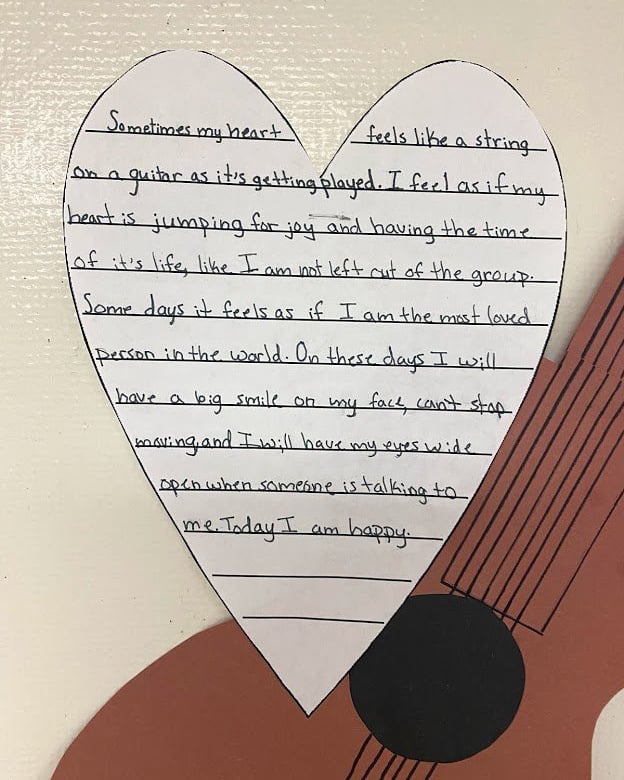 Sometimes my heart feels like a string
on a guitar as it's getting played. I feel as if my
heart is jumping for joy and having the time
of it's life, like I am not left out of the group.
Some days it feels as if I am the most loved
person in the world. On these days I will
have a big smile on my face, can't stop
moving, and I will have my eyes wide
open when someone is talking to
me. Today I am happy.